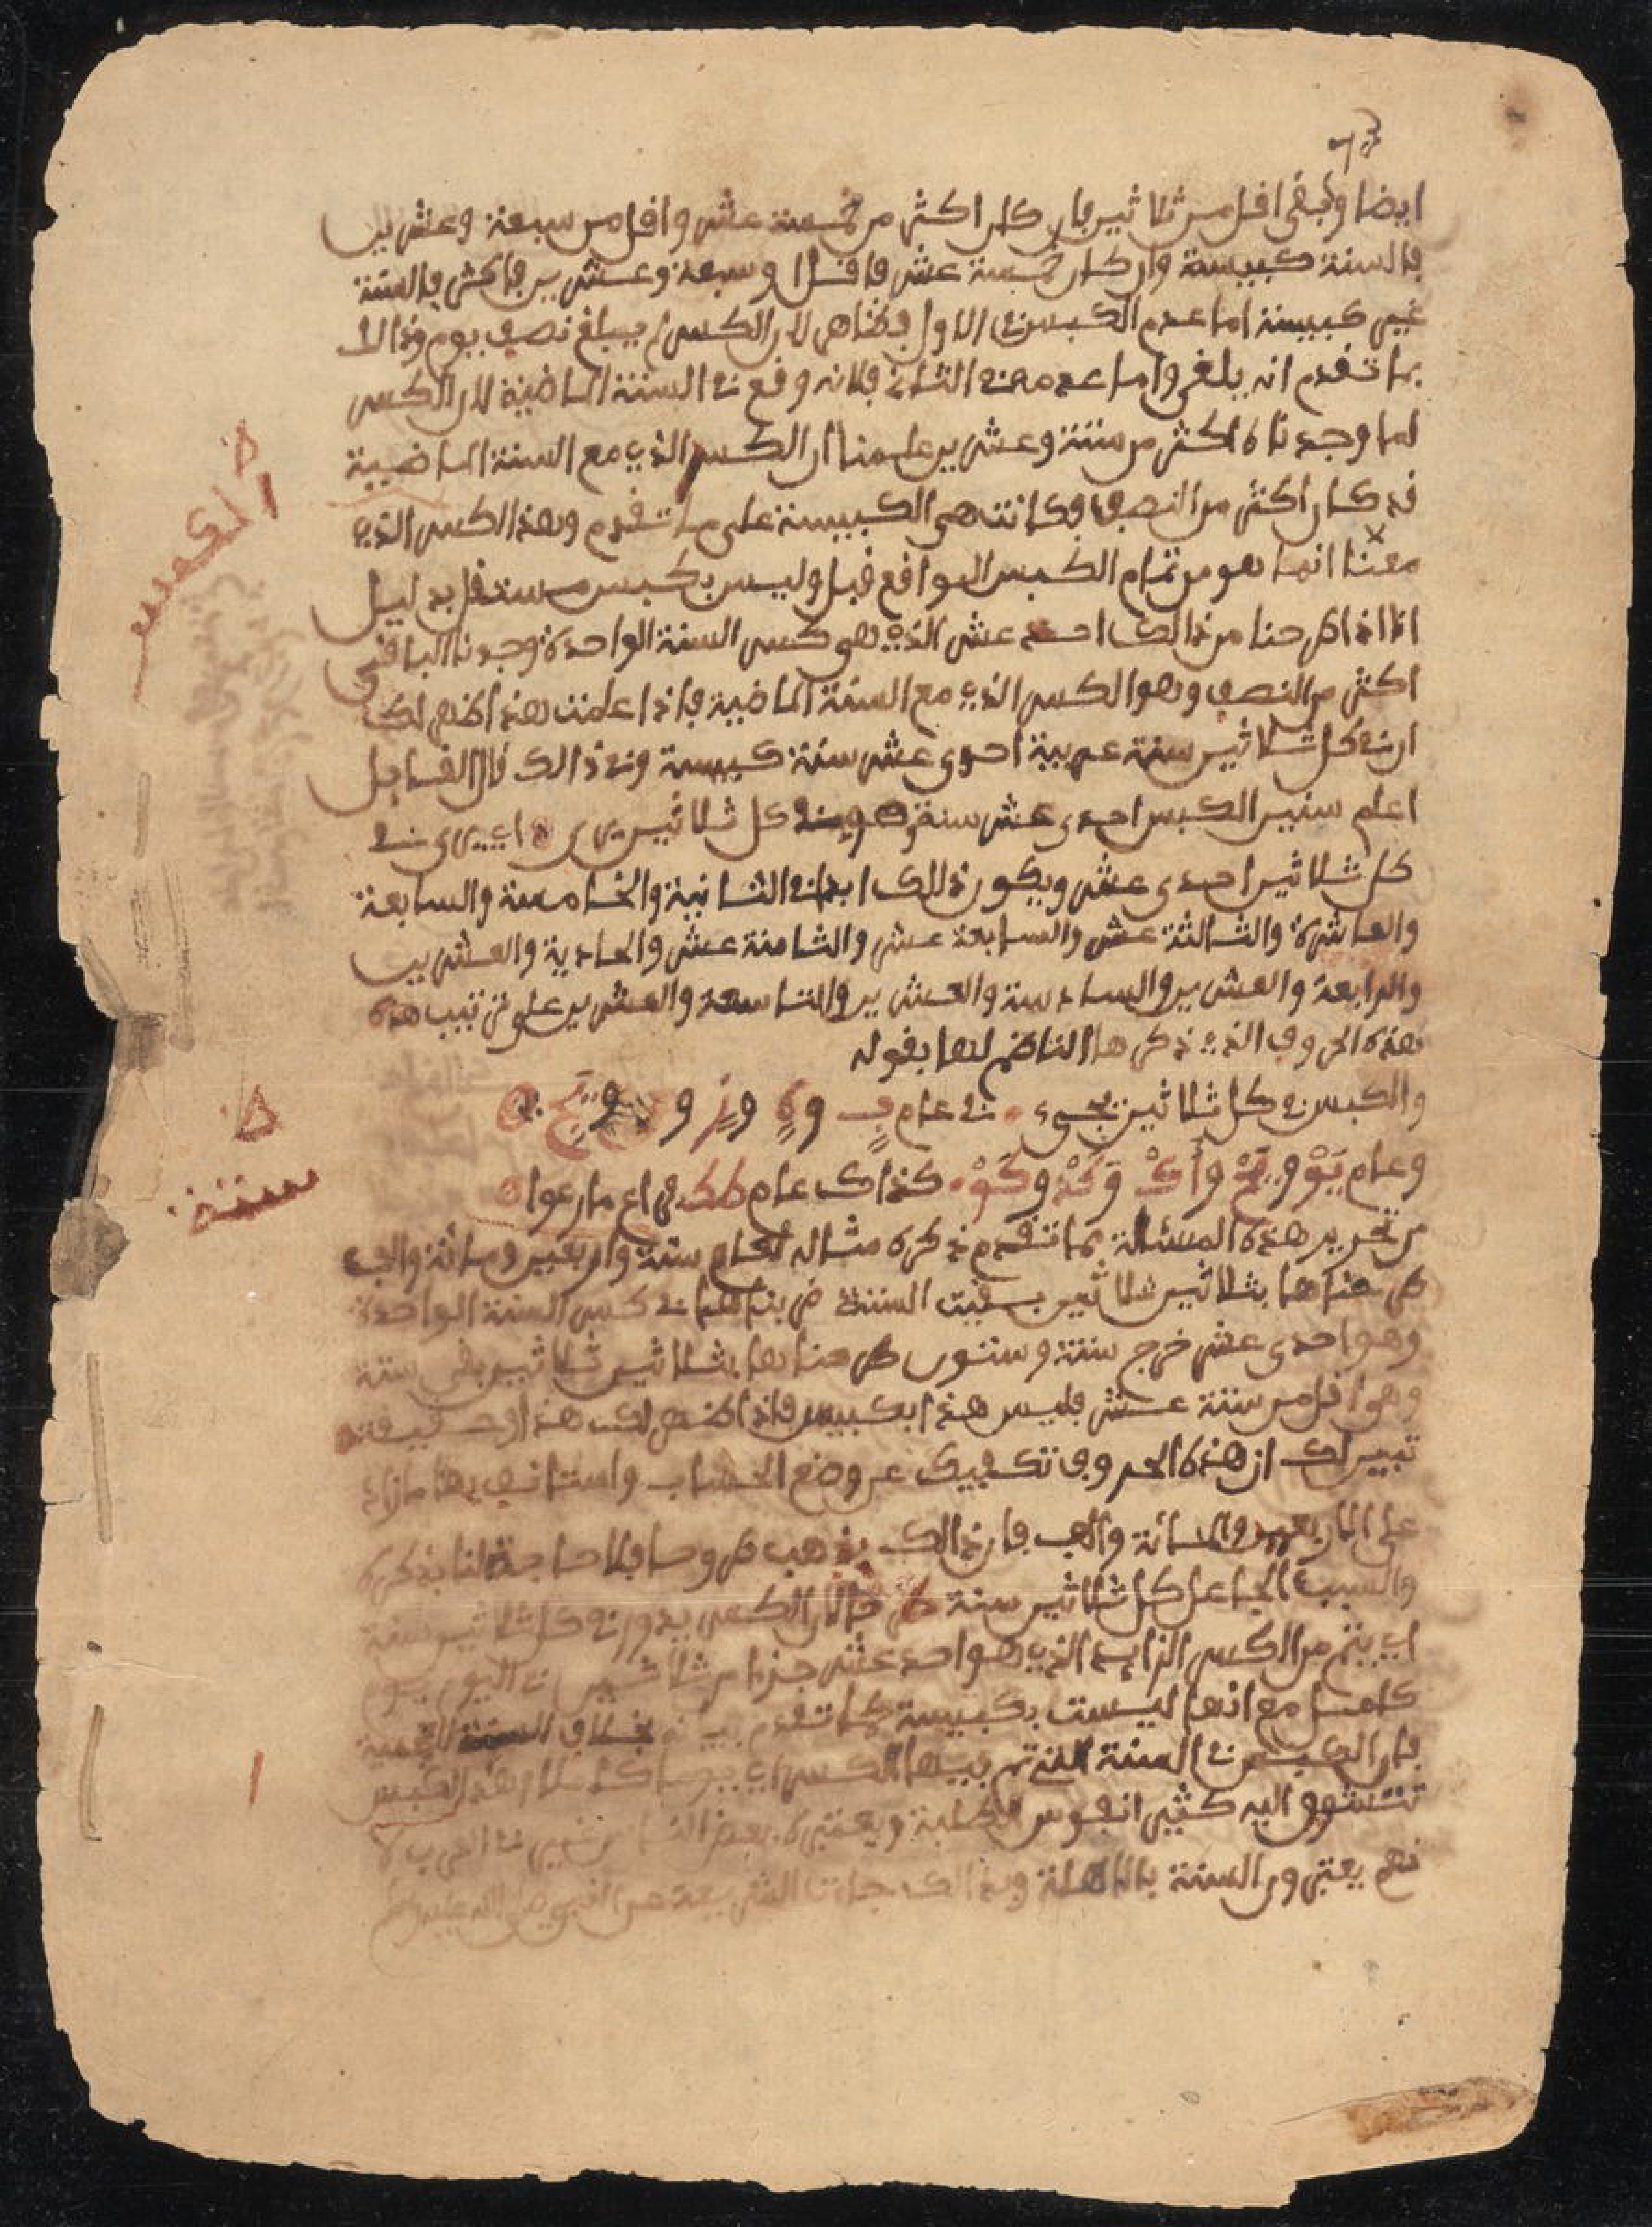 ايضا وبقي اقل من ثلاثين فان كان اكثر من خمسة عشر واقل من سبعة وعشرين
فالسنة كبيسة وان كان خمسة عشر فاقل او سبعة وعشرين فاكثر فالسنة
غير كبيسة اما عدم الكبس في الاول فظاهر لان الكسر لم يبلغ نصف يوم وذالك
بما تقدم انه يلغى واما عدمه في الثاني فلانه وقع في السنة الماضية لان الكسر
لما وجدناه اكثر من ستة وعشرين علمنا ان الكسر الذي مع السنة الماضية
قد كان اكثر من النصف فكانت هي الكبيسة على ما تقدم وهذا الكسر الذي
معنا انما هو من تمام الكبس الواقع قبل وليس بكبس مستقل بدليل
انا اذا طرحنا من ذالك احد عشر الذي هو كسر السنة الواحدة وجدنا الباقي
اكثر من النصف وهو الكسر الذي مع السنة الماضية فاذا علمت هذا ظهر لك
ان في كل ثلاثين سنة عربية احدى عشر سنة كبيسة وفي ذالك قال القايل
اعلم سنين الكبس احدى عشر سنة كل ثلاثين
كل ثلاثين احدى عشر ويكون ذالك ابدا في الثانية والخامسة والسابعة
والعاشرة والثالثة عشر والسابعة عشر والثامنة عشر والحادية والعشرين
والرابعة والعشرين والسادسة والعشرين والتاسعة والعشرين على ترتيب هذه
هذه الحروف الذي ذكرها الناظم لها بقوله
والكبس في كل ثلاثين يجيء في عام ب وه وز و ويج
وعام يو ويح واك وكد وكو كذاك عام كك في اع ما رعوا
من تحرير هذه المسئلة مما تقدم ذكره مثاله لعام ستة واربعين ومائة والف
طرحناها بثلاثين ثلاثين بقيت الستة ضربناها في كسر السنة الواحدة
وهو احدى عشر خرج ستة وستون طرحناها بثلاثين ثلاثين بقي ستة
وهو اقل من ستة عشر فليس هذا بكبيس فاذا ظهر لك هذا وحقيقته
تبين لك ان هذه الحروف تكفيك عن وضع الحساب واستانف بها ما زاد
على الاربعين والمائة والف فان ذالك يذهب طروحا فلا حاجة لنا بذكره
والسبب الجاعل كل ثلاثين سنة لان الكسر يدور في كل ثلاثين سنة
اي يتم من الكسر الزايد الذي هو احد عشر جزءا من ثلاثين في اليوم يوم
كامل مع انها ليست بكبيسة كما تقدم بخلاف السنة
فان الكبس في السنة التي تم فيها الكسر اي يوما كاملا وهذا الكبس
تتشوق اليه كثير انفوس الطلبة ويعتبره بعض الناس
فهم يعتبرون السنة بالاهلة وبذالك جاءت الشريعة عن النبي صلى الله عليه وسلم
الكبس
سنة